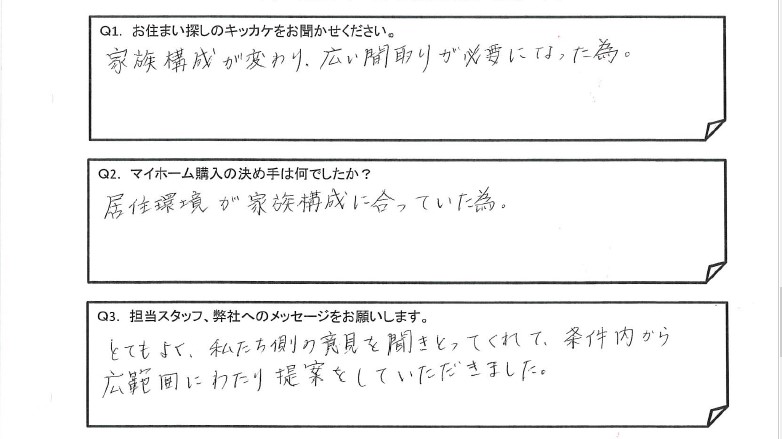 Q1. お住まい探しのキッカケをお聞かせください。
家族構成が変わり、広い間取りが必要になった為。
Q2. マイホーム購入の決め手は何でしたか？
居住環境が家族構成に合っていた為。
Q3. 担当スタッフ、弊社へのメッセージをお願いします。
とてもよく、私たち側の意見を聞きとってくれて、条件内から
広範囲にわたり提案をしていただきました。